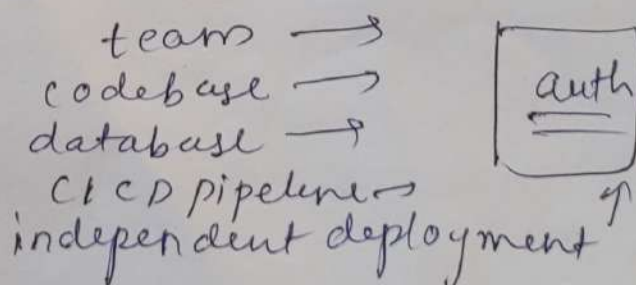 team →
codebase →
database →
CI CD pipeline →
independent deployment
auth